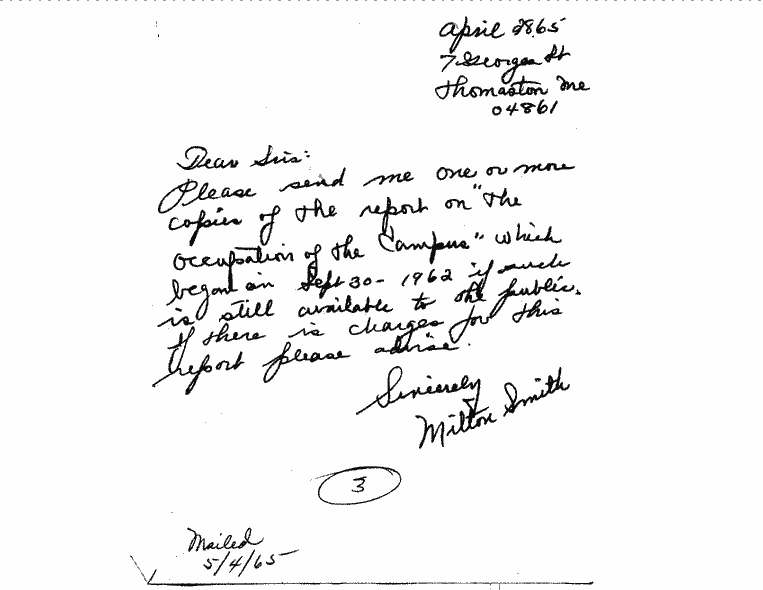 April 28 65
7 Georges St
Thomaston Me
04861
Dear Sirs:
Please send me one or more
copies of the report on "The
Occupation of the Campus" which
began on Sept 30 - 1962 if such
is still available to the public.
If there is charges for this
report please advise.
Sincerely
Milton Smith
3
Mailed
5/4/65